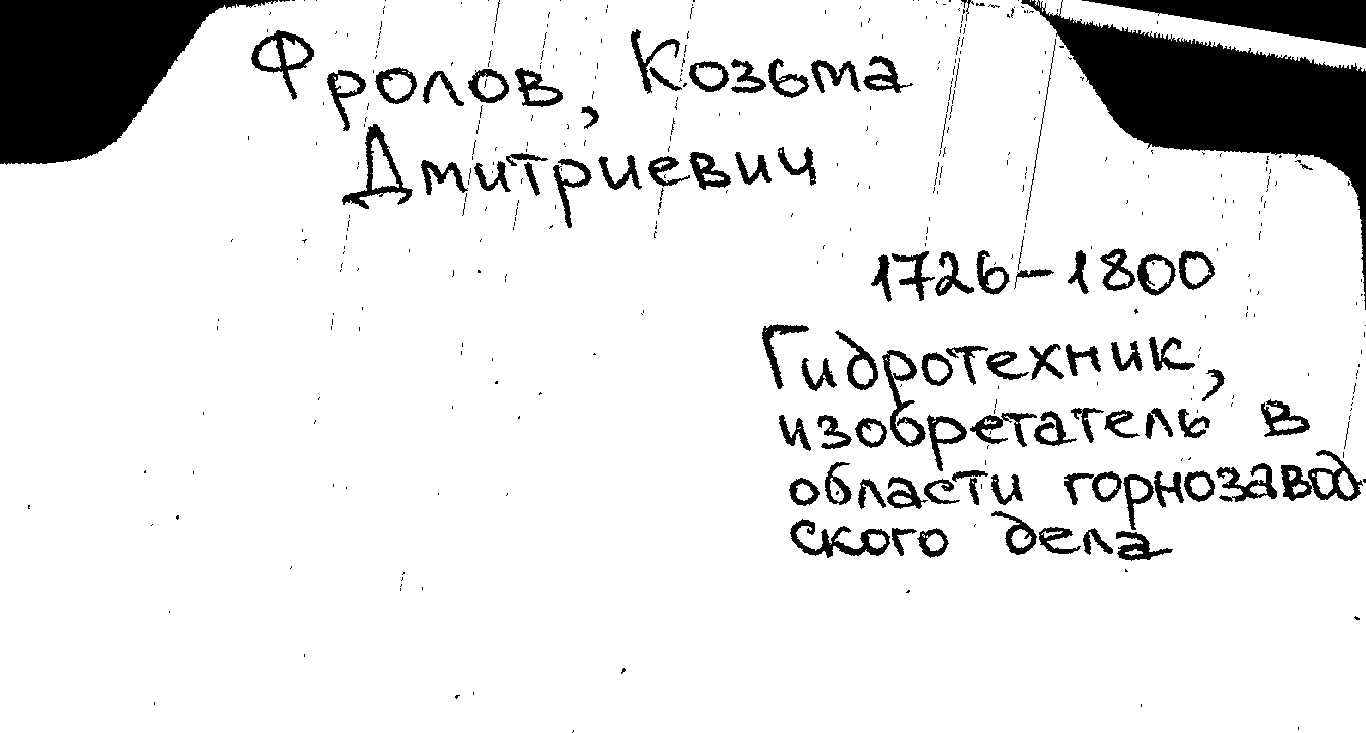 Фролов, Козьма
Дмитриевич
1726-1800
Гидротехник,
изобретатель в
области горнозавод-
ского дела